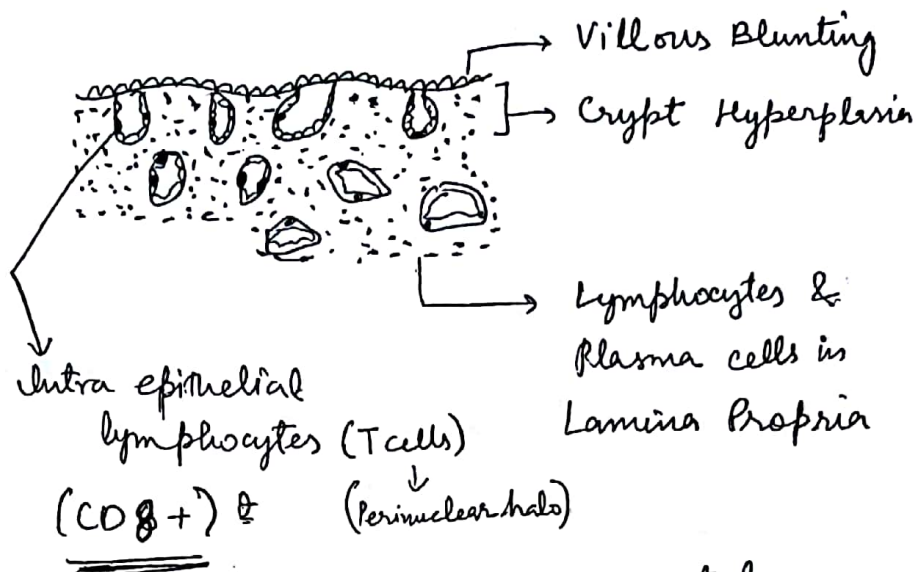 Villous Blunting
Crypt Hyperplasia
Lymphocytes &
Plasma cells in
Lamina Propria
Intra epithelial
lymphocytes (T cells)
↓
(Perinuclear halo)
(CD8+)